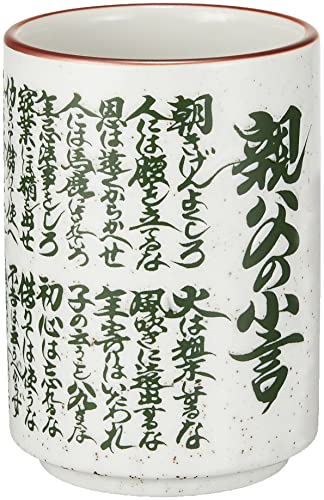 親父の小言
朝きげんよくしろ
人には腹を立てるな
恩は遠くからかくせ
人には馬鹿にされていろ
年忌法事をしろ
家業は精出せ
火は粗末にするな
風吹きに遠出するな
年寄はいたわれ
子の云うこと
初心は忘れるな
借りては使うな